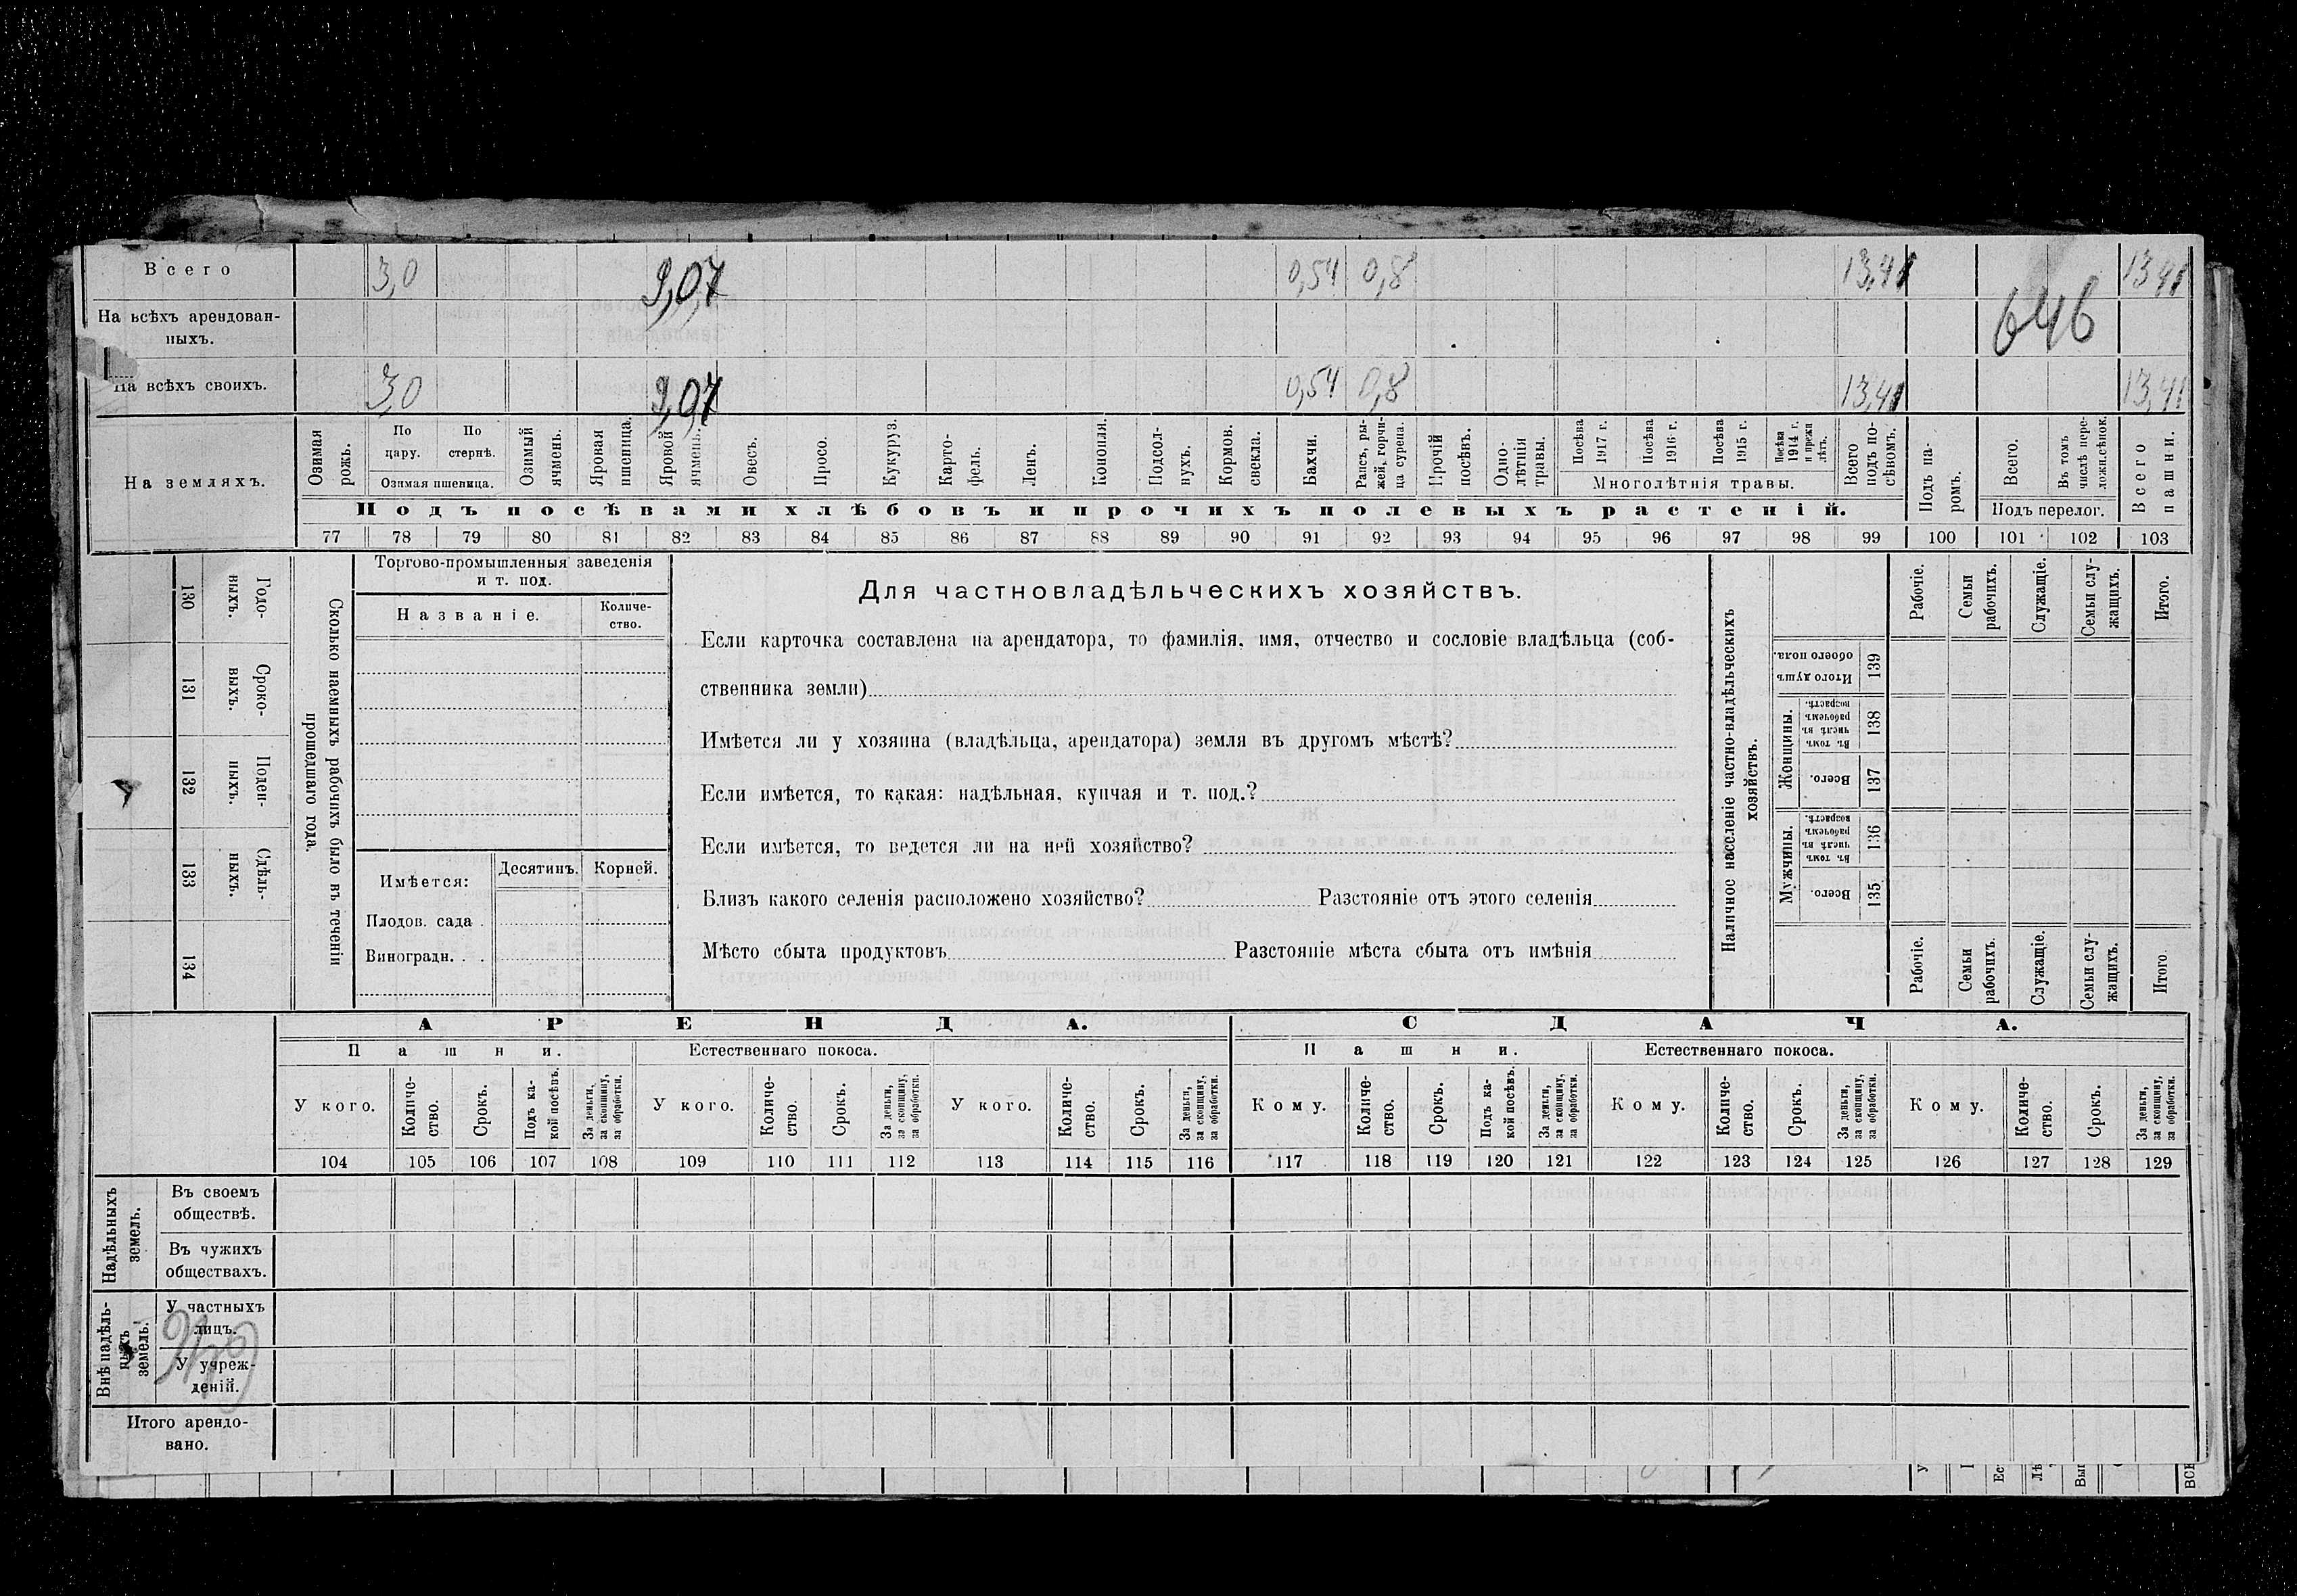 Всего 3,0 9,07 0,54 0,8 13,41 13,41
На всѣхъ арендован-
ныхъ.
646
На всѣхъ своихъ. 3,0 9,07 0,54 0,8 13,41 13,41
На земляхъ.
Озимая рожь.
По пару.
По стернѣ.
Озимая пшеница.
Озимый ячмень.
Яровая пшеница.
Яровой ячмень.
Овесъ.
Просо.
Кукуруз.
Карто-
фель.
Ленъ.
Конопля.
Подсол-
нухъ.
Кормов.
свекла.
Бахчи.
Рапсъ, ры-
жей, горчи-
ца сурепа.
Прочій
посѣвъ.
Одно-
лѣтнія
травы.
Посѣва
1917 г.
Посѣва
1916 г.
Посѣва
1915 г.
Посѣва
1914 г.
и прежн
лѣтъ.
Многолѣтнія травы.
Всего
подъ по-
сѣвомъ.
Подъ па-
ромъ.
Всего.
Въ томъ
числѣ пере-
ложн.сѣнок.
Подъ перелог.
Всего
пашни.
Подъ посѣвами хлѣбовъ и прочихъ полевыхъ растеній.
77 78 79 80 81 82 83 84 85 86 87 88 89 90 91 92 93 94 95 96 97 98 99 100 101 102 103
130 Годо-
выхъ.
131 Сроко-
выхъ.
132 Поден-
ныхъ.
133 Сдѣль-
ныхъ.
134
Сколько наемныхъ рабочихъ было въ теченіи
прошедшаго года.
Торгово-промышленныя заведенія
и т. под.
Названіе.
Количе-
ство.
Имѣется:
Десятинъ.
Корней.
Плодов. сада .
Виноградн. . .
Для частновладѣльческихъ хозяйствъ.
Если карточка составлена на арендатора, то фамилія, имя, отчество и сословіе владѣльца (соб-
ственника земли)
Имѣется ли у хозяина (владѣльца, арендатора) земля въ другомъ мѣстѣ?
Если имѣется, то какая: надѣльная, купчая и т. под.?
Если имѣется, то ведется ли на ней хозяйство?
Близъ какого селенія расположено хозяйство? Разстояніе отъ этого селенія
Мѣсто сбыта продуктовъ Разстояніе мѣста сбыта отъ имѣнія
Наличное населеніе частно-владѣльческихъ
хозяйствъ.
Рабочіе.
Семьи
рабочихъ.
Служащіе.
Семьи слу-
жащихъ.
Итого.
Итого душъ
обоего пола.
139
Женщины.
Въ томъ
числѣ въ
рабочемъ
возрастѣ.
138
Всего.
137
Мужчины.
Въ томъ
числѣ въ
рабочемъ
возрастѣ.
136
Всего.
135
Рабочіе.
Семьи
рабочихъ.
Служащіе.
Семьи слу-
жащихъ.
Итого.
АРЕНДА.
СДАЧА.
Пашни.
Естественнаго покоса.
Пашни.
Естественнаго покоса.
У кого.
Количе-
ство.
Срокъ.
Подъ ка-
кой посѣвъ.
За деньги,
за скопщину,
за обработки.
У кого.
Количе-
ство.
Срокъ.
За деньги,
за скопщину,
за обработки.
У кого.
Количе-
ство.
Срокъ.
За деньги,
за скопщину,
за обработки.
Кому.
Количе-
ство.
Срокъ.
Подъ ка-
кой посѣвъ.
За деньги,
за скопщину,
за обработки.
Кому.
Количе-
ство.
Срокъ.
За деньги,
за скопщину,
за обработки.
Кому.
Количе-
ство.
Срокъ.
За деньги,
за скопщину,
за обработки.
104 105 106 107 108 109 110 111 112 113 114 115 116 117 118 119 120 121 122 123 124 125 126 127 128 129
Надѣльныхъ
земель.
Въ своемъ
обществѣ.
Въ чужихъ
обществахъ.
Внѣ надѣль-
ныхъ
земель.
У частныхъ
лицъ.
У учреж-
деній.
Итого арендо-
вано.